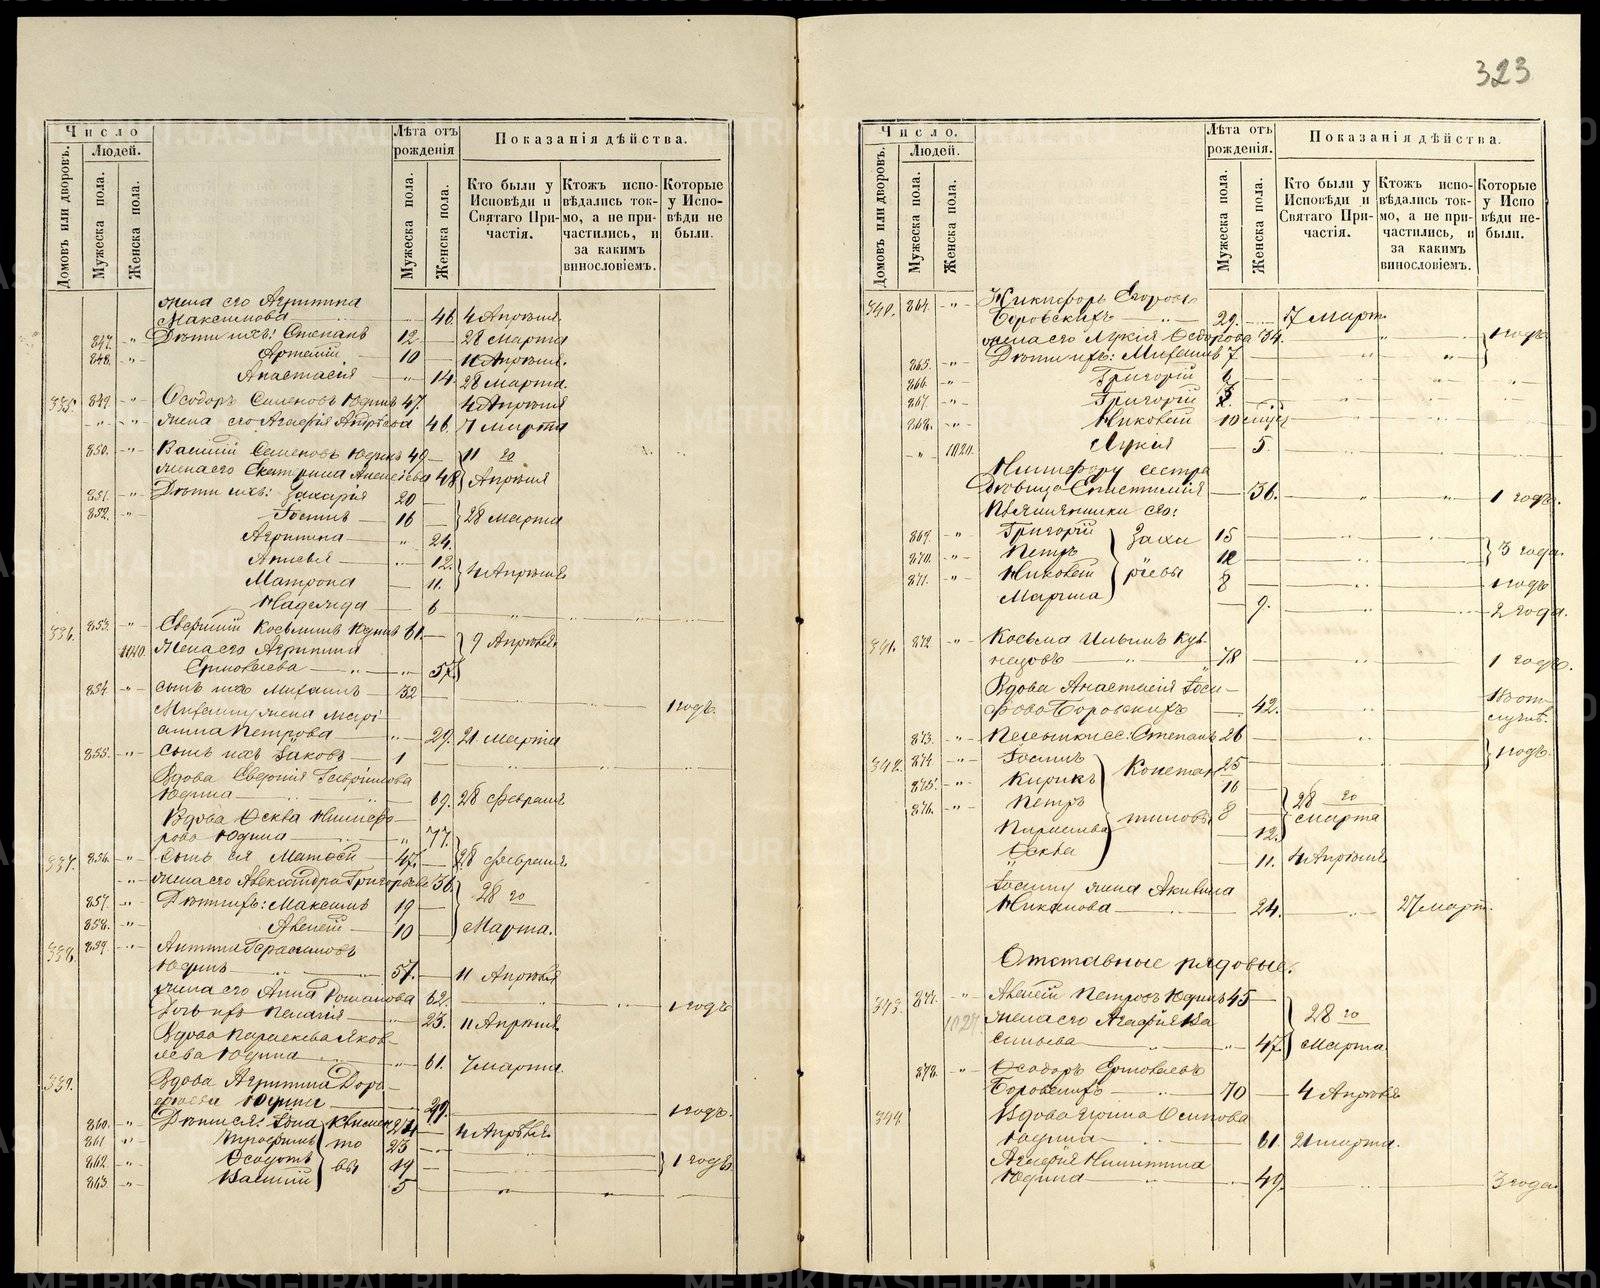 323
Число
Людей.
Домовъ или дворовъ.
Мужеска пола.
Женска пола.
Лѣта отъ рожденія
Мужеска пола.
Женска пола.
Показанія дѣйства.
Кто были у Исповѣди и Святаго Причастія.
Ктожъ исповѣдались токмо, а не причастились, и за какимъ винословіемъ.
Которые у Исповѣди не были.
жена его Агрипина
Максимова 46. 4 Апрѣля
847. Дѣти ихъ: Степанъ 12 28 Марта
848. Артемій 10 11 Апрѣля.
Анастасія 14 28 Марта
335 849 Ѳеодоръ Семеновъ Юдинъ 47. 4 Апрѣля
жена его Агафія 46. 7 Марта
850. Василій Семеновъ Юдинъ 49 11 го
жена его Екатерина 48 Апрѣля
851. Дѣти ихъ: Захарія 20
852. Іосифъ 16 28 Марта
Агрипина 24.
12.
Матрона 11. 4 Апрѣля
Надежда 6
336. 853. Косьминъ Юдинъ 61. 9 Апрѣля
1010. Жена его Агрипина
Ермолаева 57.
854 сынъ ихъ Михаилъ 32 1 годъ.
Михаилу жена Марі-
анна Петрова 29. 21 Марта
855. сынъ ихъ Іаковъ 1
Вдова Гавріилова
Юдина 69. 28 Февраля
Вдова Ѳекла Никифо-
рова Юдина 77.
337. 856. сынъ ея Матѳей 47. 28 Февраля
жена его Александра Григорьева 50. 28 го
857. Дѣти ихъ: Максимъ 19
858. Алексій 10 Марта.
338 859. Герасимовъ
Юдинъ 57. 11 Апрѣля
жена его Анна Романова 62. 1 годъ
Дочь ихъ Пелагія 23. 11 Апрѣля.
Вдова Параскева Яков-
лева Юдина 61. 7 марта.
339. Вдова Агрипина Доро-
феева Юдина 49. 1 годъ.
860. Дѣти ея: 4 Апрѣля.
861 Трофимъ 23
862. Ѳеодотъ 19 1 годъ
863. Василій 5
Число.
Людей.
Домовъ или дворовъ.
Мужеска пола.
Женска пола.
Лѣта отъ рожденія.
Мужеска пола.
Женска пола.
Показанія дѣйства.
Кто были у Исповѣди и Святаго Причастія.
Ктожъ исповѣдались токмо, а не причастились, и за какимъ винословіемъ.
Которые у Исповѣди небыли.
340. 864. Никифоръ Егоровъ
Боровскихъ 29. 17 Март.
жена его Лукія Ѳедорова 34. 1 годъ
865. Дѣти ихъ: Михаилъ 7
866. Григорій 6
867. Григорій
868. Николай 10
1020. Лукія 5.
Никифору сестра
Дѣвица Епистимія 36. 1 годъ.
Племянники его:
869. Григорій Заха 15
870. Петръ 12 3 года.
871. Николай ріевы 8 1 годъ
Марѳа 9. 2 года.
341. 872 Косьма Ильинъ Куз-
нецовъ 78 1 годъ.
Вдова Анастасія Іоси-
фова Боровскихъ 42. Въ от-
лучкѣ.
873. Степанъ 26
342. 874 Іосифъ Констан 25 1 годъ.
875. Кирикъ 16
876. Петръ тиновы 8 28 го
Параскева 12. Марта
Ѳекла 11. 4 Апрѣля
Іосифу жена Акилина
Никонова 24. 27 Март.
Отставные рядовые.
343. 877. Алексій Петровъ Юдинъ 45
1027. жена его Агафія Ва 28 го
сильева 47. Марта
878. Ѳеодоръ Ермолаевъ
Боровскихъ 70 4 Апрѣля
344 Вдова Ирина Осипова
Юдина 61. 21 марта.
Агафія Никитина
Юдина 49. 3 года.
METRIKI.GASO-URAL.RU